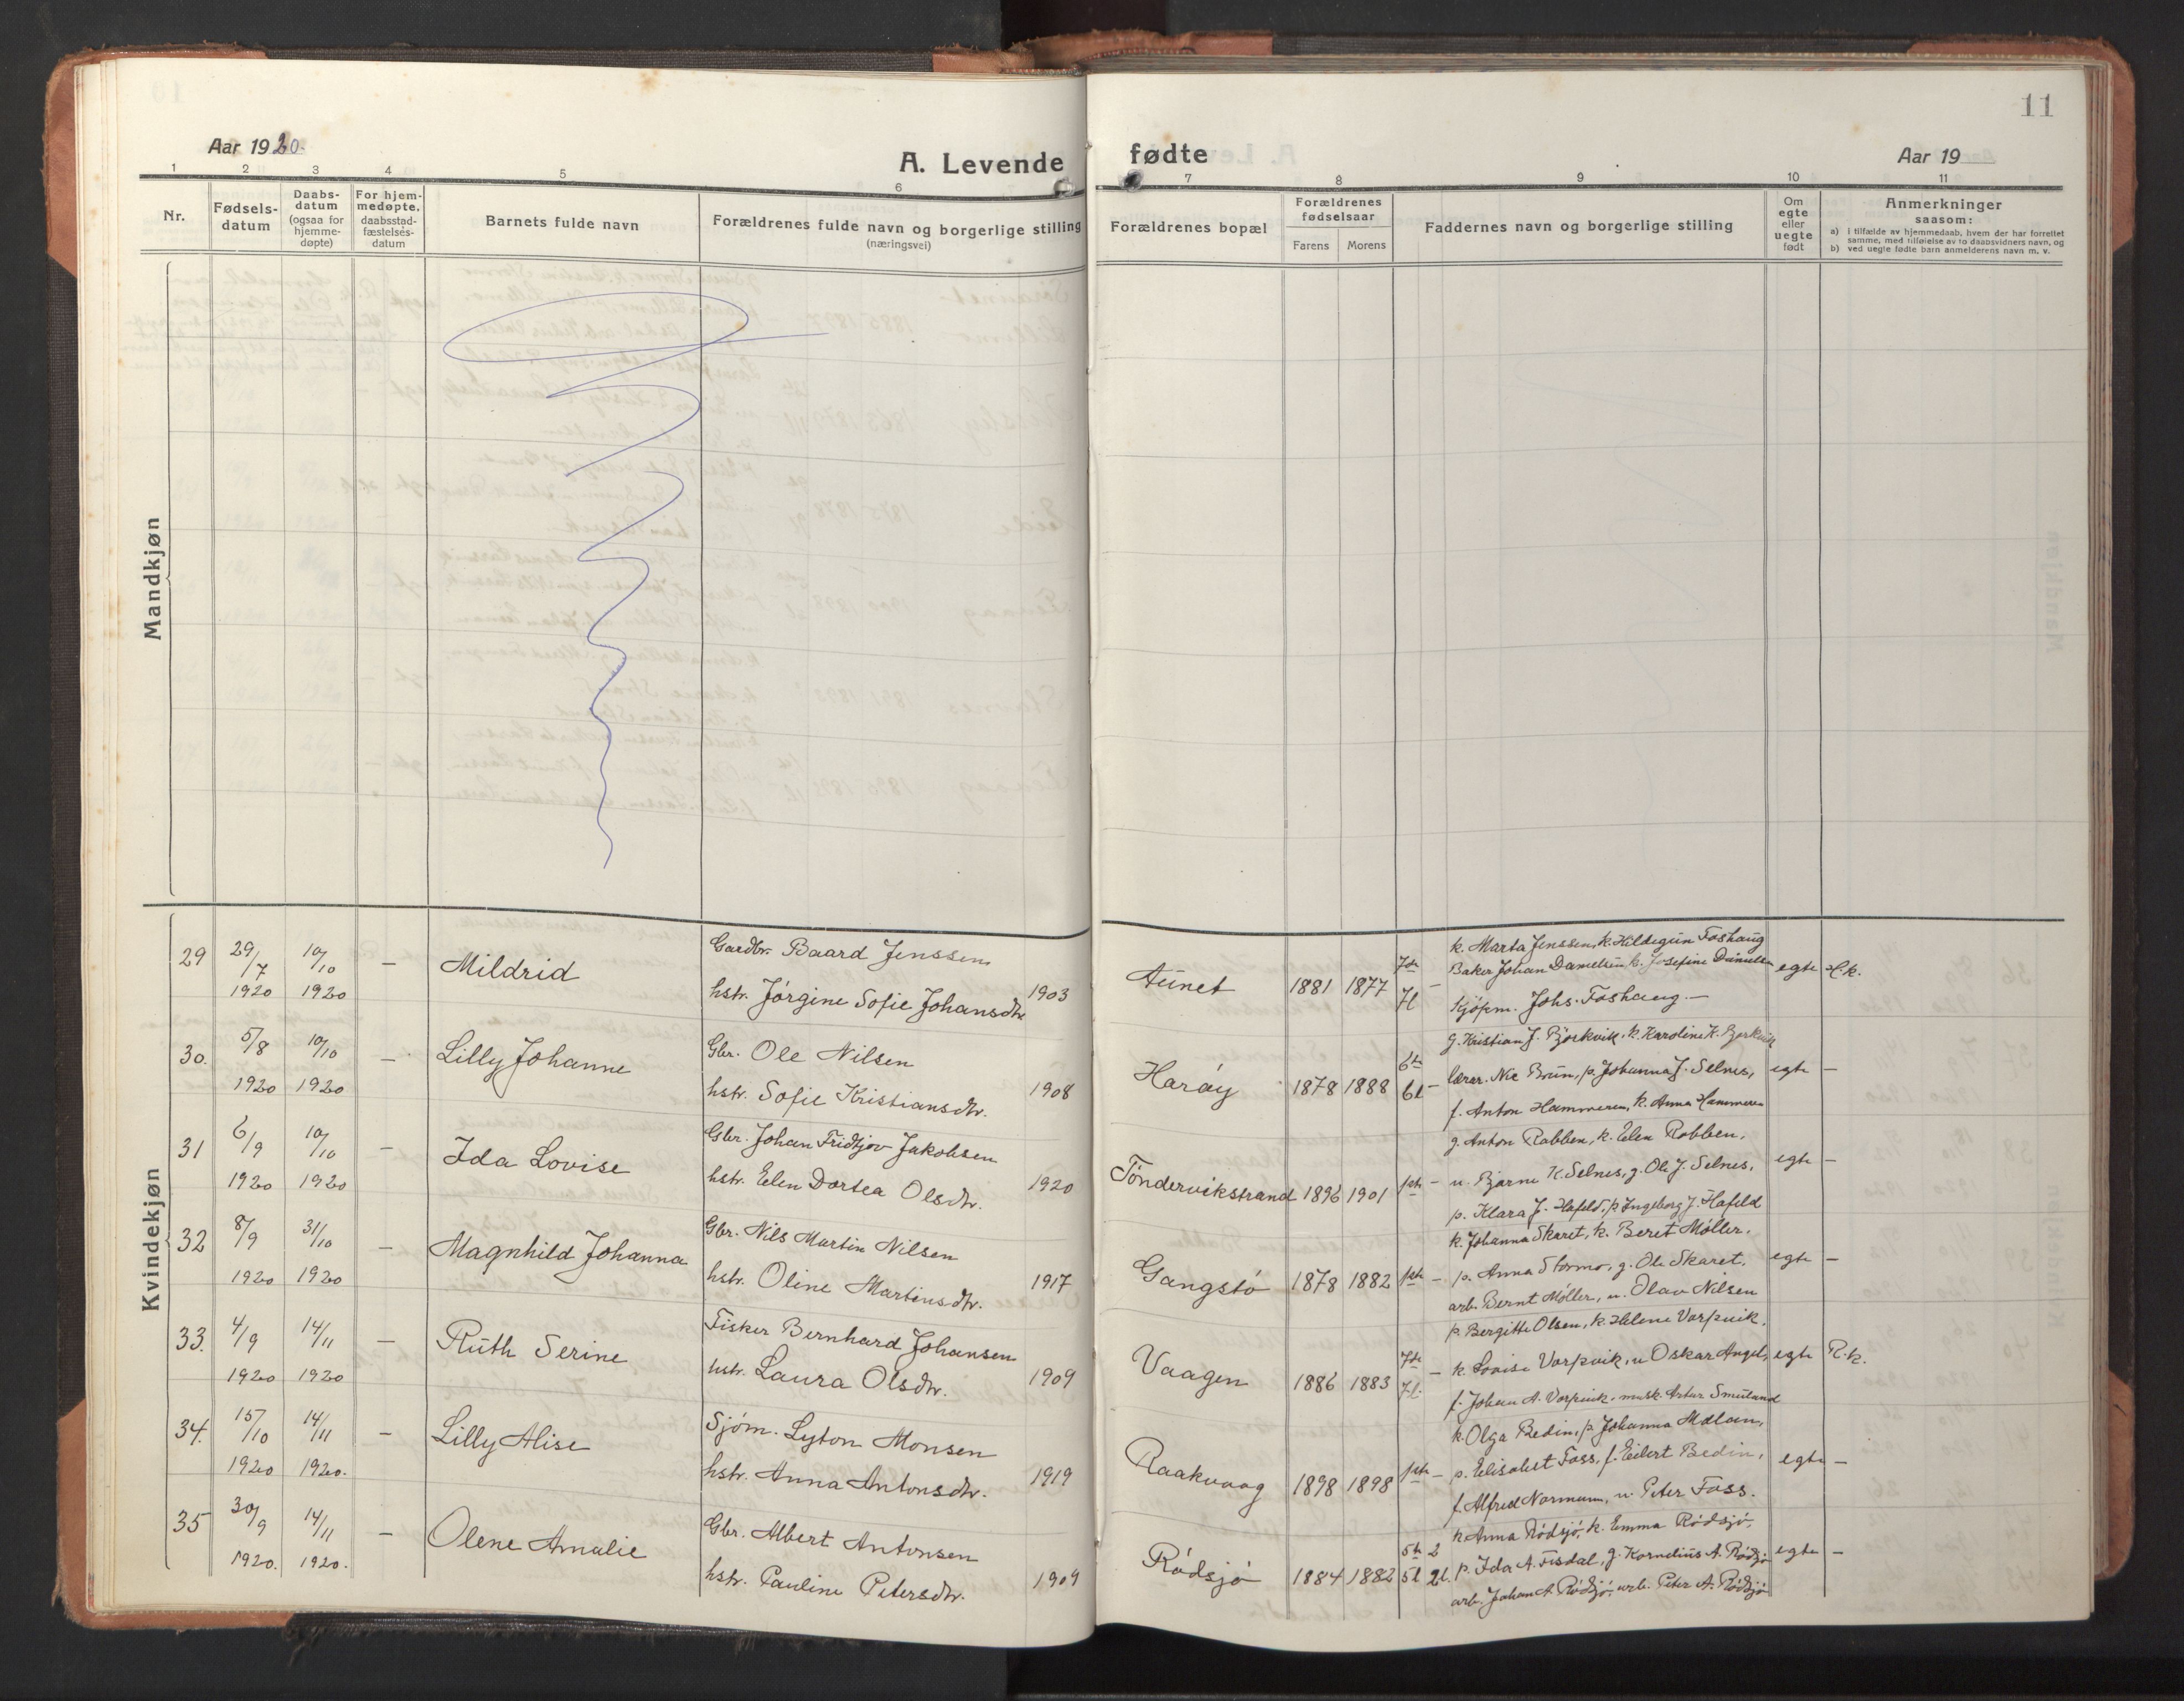 11
Aar 1920.
A. Levende fødte
Aar 19
1 2 3 4 5 6 7 8 9 10 11
Nr.
Fødsels-
datum
Daabs-
datum
(ogsaa for
hjemme-
døpte)
For hjem-
medøpte.
daabsstad-
fæstelsés-
datum
Barnets fulde navn
Forældrenes fulde navn og borgerlige stilling
(næringsvei)
Forældrenes bopæl
Forældrenes
fødselsaar
Farens Morens
Faddernes navn og borgerlige stilling
Om
egte
eller
uegte
født
Anmerkninger
saasom:
a) i tilfælde av hjemmedaab, hvem der har forrettet
samme, med tilføielse av to daabsvidners navn, og
b) ved uegte fødte barn anmelderens navn m. v.
Mandkjøn
Kvindekjøn
29 29/7 1920 10/10 1920 — Mildrid
Gardbr. Baard Jenssen
hstr. Jørgine Sofie Johansdtr 1903
Aunet 1881 1877 7de 7l —
k. Marta Jenssen, k. Hildegun Foshaug
Baker Johan Danielsen, k. Josefine Danielsen
Kjøpm. Johs. Foshaug. —
egte H.k.
30. 5/8 1920 10/10 1920 — Lilly Johanne
Gbr. Ole Nilsen
hstr. Sofie Kristiansdtr. 1908
Harøy 1878 1888 6te 6l —
g. Kristian J. Bjørkvik, k. Karoline K. Bjørkvik
lærer. Nic Brun, p. Johanna J. Selnes,
f. Anton Hammeren, k. Anna Hammeren
egte —
31 6/9 1920 10/10 1920 — Ida Lovise
Gbr. Johan Fridtjov Jakobsen
hstr. Elen Dortea Olsdtr. 1920
Tøndervikstrand 1896 1901 1ste —
g. Anton Robben, k. Elen Robben.
u. Bjarne K. Selnes, g. Ole J. Selnes.
p. Klara J. Hafeld, p. Ingeborg J. Hafeld
egte —
32 8/9 1920 31/10 1920 — Magnhild Johanna
Gbr. Nils Martin Nilsen
hstr. Oline Martinsdtr. 1917
Gangstø 1878 1882 1ste —
k. Johanna Skaret, k. Beret Møller.
p. Anna Stormo, g. Ole Skaret.
arb. Bernt Møller, u. Olav Nilsen
egte —
33. 4/9 1920 14/11 1920 — Ruth Serine
Fisker Bernhard Johansen
hstr. Laura Olsdtr. 1909
Vaagen 1886 1883 7de 7l. —
p. Bergitte Olsen, k. Helene Vorpvik.
k. Lovise Vorpvik, u. Oskar Angel,
f. Johan A. Vorpvik, musk. Artur Småland
egte R.k.
34. 15/10 1920 14/11 1920. — Lilly Alise
Sjøm. Lyton Monsen
hstr. Anna Antonsdtr. 1919
Raakvaag 1898 1898 1ste —
k. Olga Bedin, p. Johanna Mælan,
p. Elisabet Foss, f. Eilert Bedin,
f. Alfred Normann, u. Peter Foss.
egte —
35 30/9 1920. 14/11 1920. — Olene Amalie
Gbr. Albert Antonsen
hstr. Pauline Petersdtr. 1909
Rødsjø 1884 1882 5te 2 5l 2l.
k. Anna Rødsjø, k. Emma Rødsjø,
p. Ida A. Fisdal, g. Kornelius A. Rødsjø
arb. Johan A. Rødsjø, arb. Peter A. Rødsjø
egte —